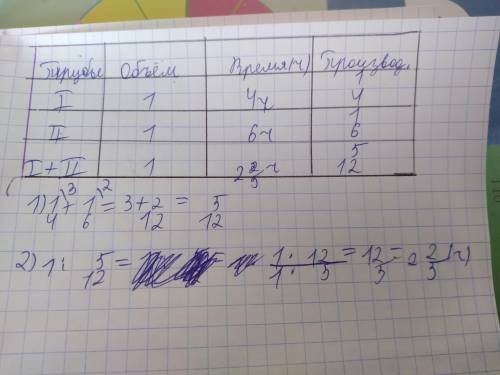 Трубы Объём Время(ч) Производ.
I 1 4ч 1/4
II 1 6ч 1/6
I+II 1 2 2/5 ч 5/12
1) 1/4 + 1/6 = 3+2/12 = 5/12
2) 1 : 5/12 = 1/1 : 12/5 = 12/5 = 2 2/5 (ч)